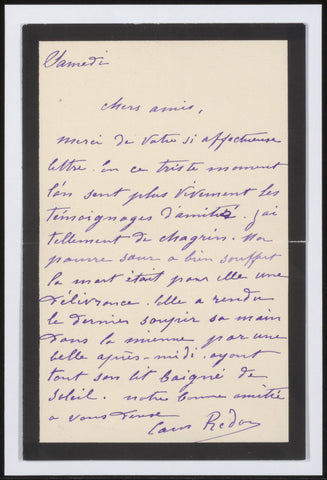 Samedi
Chers amis,
merci de votre si affectueuse
lettre. En ce triste moment
l'on sent plus vivement les
témoignages d'amitié. j'ai
tellement de chagrin. Ma
pauvre sœur a bien souffert
la mort était pour elle une
délivrance. Elle a rendu
le dernier soupir sa main
dans la mienne, par une
belle après-midi, ayant
tout son lit baigné de
soleil. notre bonne amitié
a vous deux
Redon